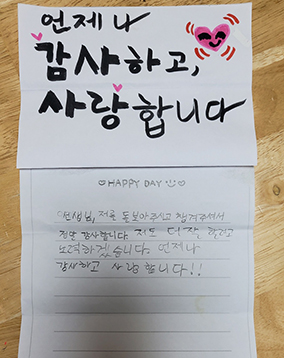 언제나
감사하고,
사랑합니다
HAPPY DAY
선생님, 저를 돌보아주시고 챙겨주셔서
정말 감사합니다. 저도 더 잘 할려고
노력하겠습니다. 언제나
감사하고 사랑합니다!!